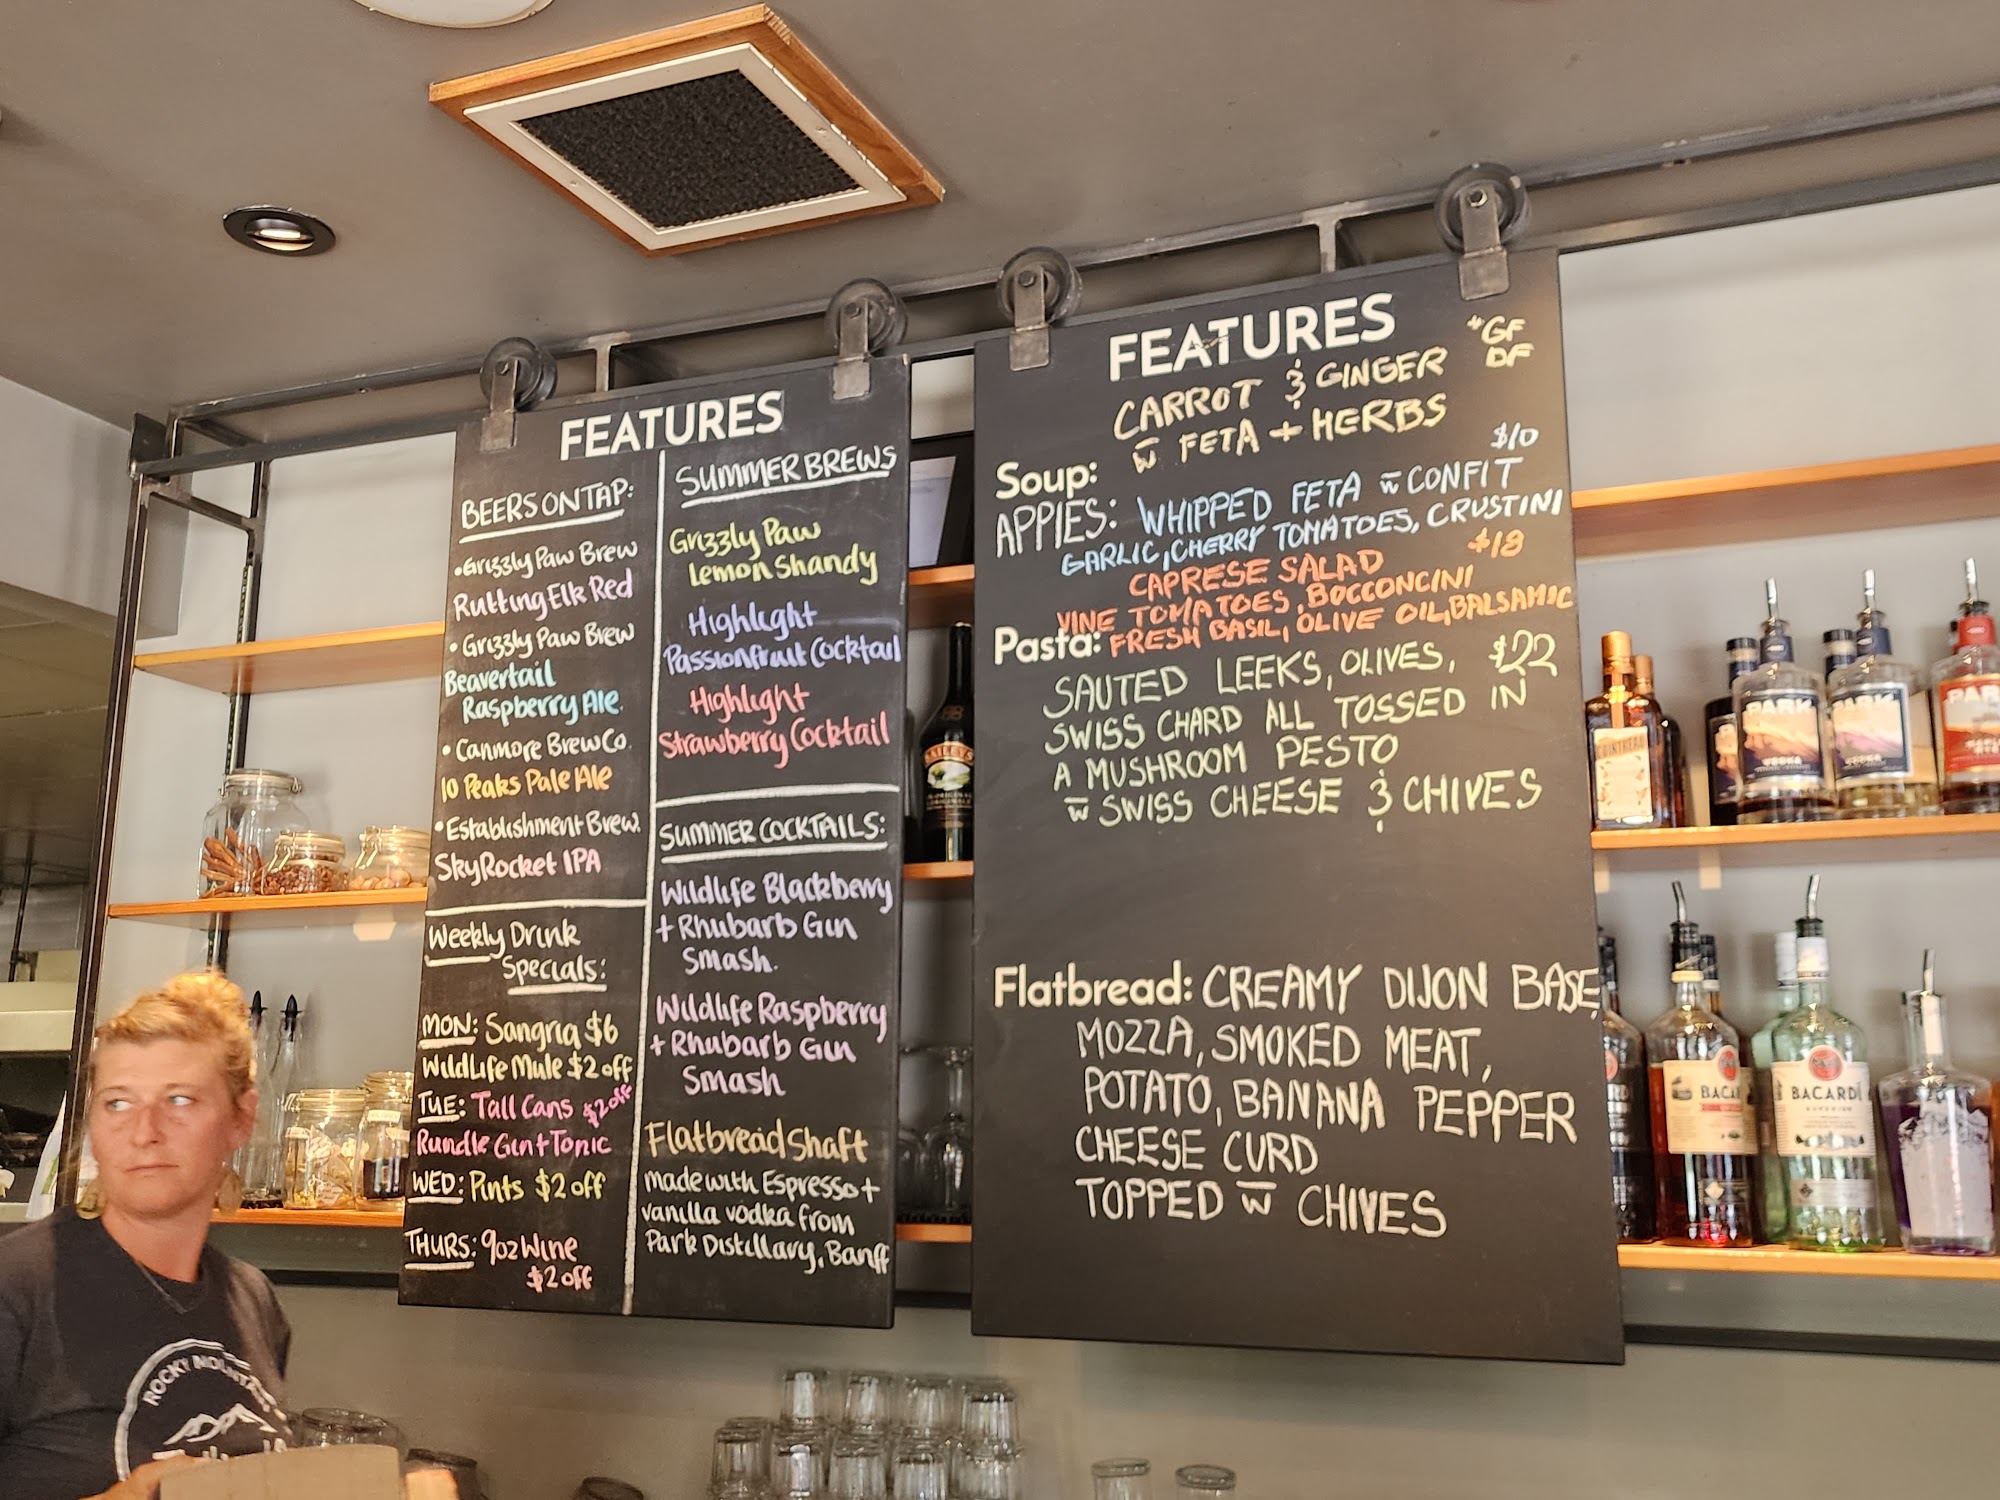 FEATURES
BEERS ON TAP:
•Grizzly Paw Brew
Rutting Elk Red
• Grizzly Paw Brew
Beavertail
Raspberry Ale.
• Canmore Brew Co.
10 Peaks Pale Ale
• Establishment Brew.
SkyRocket IPA
Weekly Drink
Specials:
MON: Sangria $6
WildLife Mule $2 off
TUE: Tall Cans $2off
Rundle Gin+Tonic
WED: Pints $2 off
THURS: 9oz Wine
$2 off
SUMMER BREWS
Grizzly Paw
Lemon Shandy
Highlight
Passionfruit Cocktail
Highlight
Strawberry Cocktail
SUMMER COCKTAILS:
Wildlife Blackberry
+ Rhubarb Gin
Smash.
Wildlife Raspberry
+ Rhubarb Gin
Smash
Flatbread Shaft
made with Espresso +
vanilla vodka from
Park Distillary, Banff
FEATURES
*GF
DF
CARROT & GINGER
w̄ FETA + HERBS
$10
Soup:
APPIES: WHIPPED FETA w̄ CONFIT
GARLIC, CHERRY TOMATOES, CRUSTINI
CAPRESE SALAD $18
VINE TOMATOES, BOCCONCINI
Pasta: FRESH BASIL, OLIVE OIL, BALSAMIC
SAUTED LEEKS, OLIVES, $22
SWISS CHARD ALL TOSSED IN
A MUSHROOM PESTO
w̄ SWISS CHEESE & CHIVES
Flatbread: CREAMY DIJON BASE,
MOZZA, SMOKED MEAT,
POTATO, BANANA PEPPER
CHEESE CURD
TOPPED w̄ CHIVES
BAILEYS
COINTREAU
PARK
VODKA
PARK
VODKA
PAR
BACAR
BACARDÍ
SUPERIOR
ROCKY MOUNTA